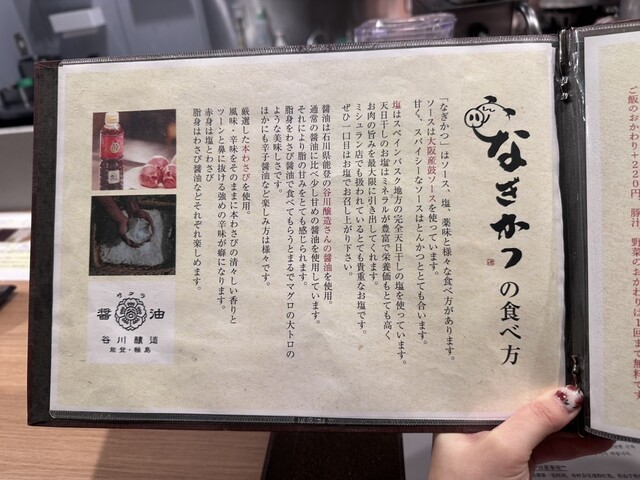 なぎかつの食べ方
「なぎかつ」はソース、塩、薬味と様々な食べ方があります。
ソースは大阪産鼓ソースを使っています。
甘く、スパイシーなソースはとんかつととても合います。
塩はスペインバスク地方の完全天日干しの塩を使っています。
天日干しのお塩はミネラルが豊富で栄養価もとても高く
お肉の旨みを最大限に引き出してくれます。
ミシュラン店でも扱われているとても貴重なお塩です。
ぜひ一口目はお塩でお召し上がり下さい。
醤油は石川県能登の谷川醸造さんの醤油を使用。
通常の醤油に比べ少し甘めの醤油を使用しています。
それにより脂の甘みをとても感じられます。
脂身をわさび醤油で食べてもらうとまるでマグロの大トロの
ような美味しさです。
ほかにも辛子醤油など楽しみ方は様々です。
厳選した本わさびを使用。
風味・辛味をそのままに本わさびの清々しい香りと
ツーンと鼻に抜ける強めの辛味が癖になります。
赤身は塩とわさび
脂身はわさび醤油などそれぞれ楽しめます。
サクラ
醤油
谷川醸造
能登・輪島
ご飯のおかわり+220円。豚汁、